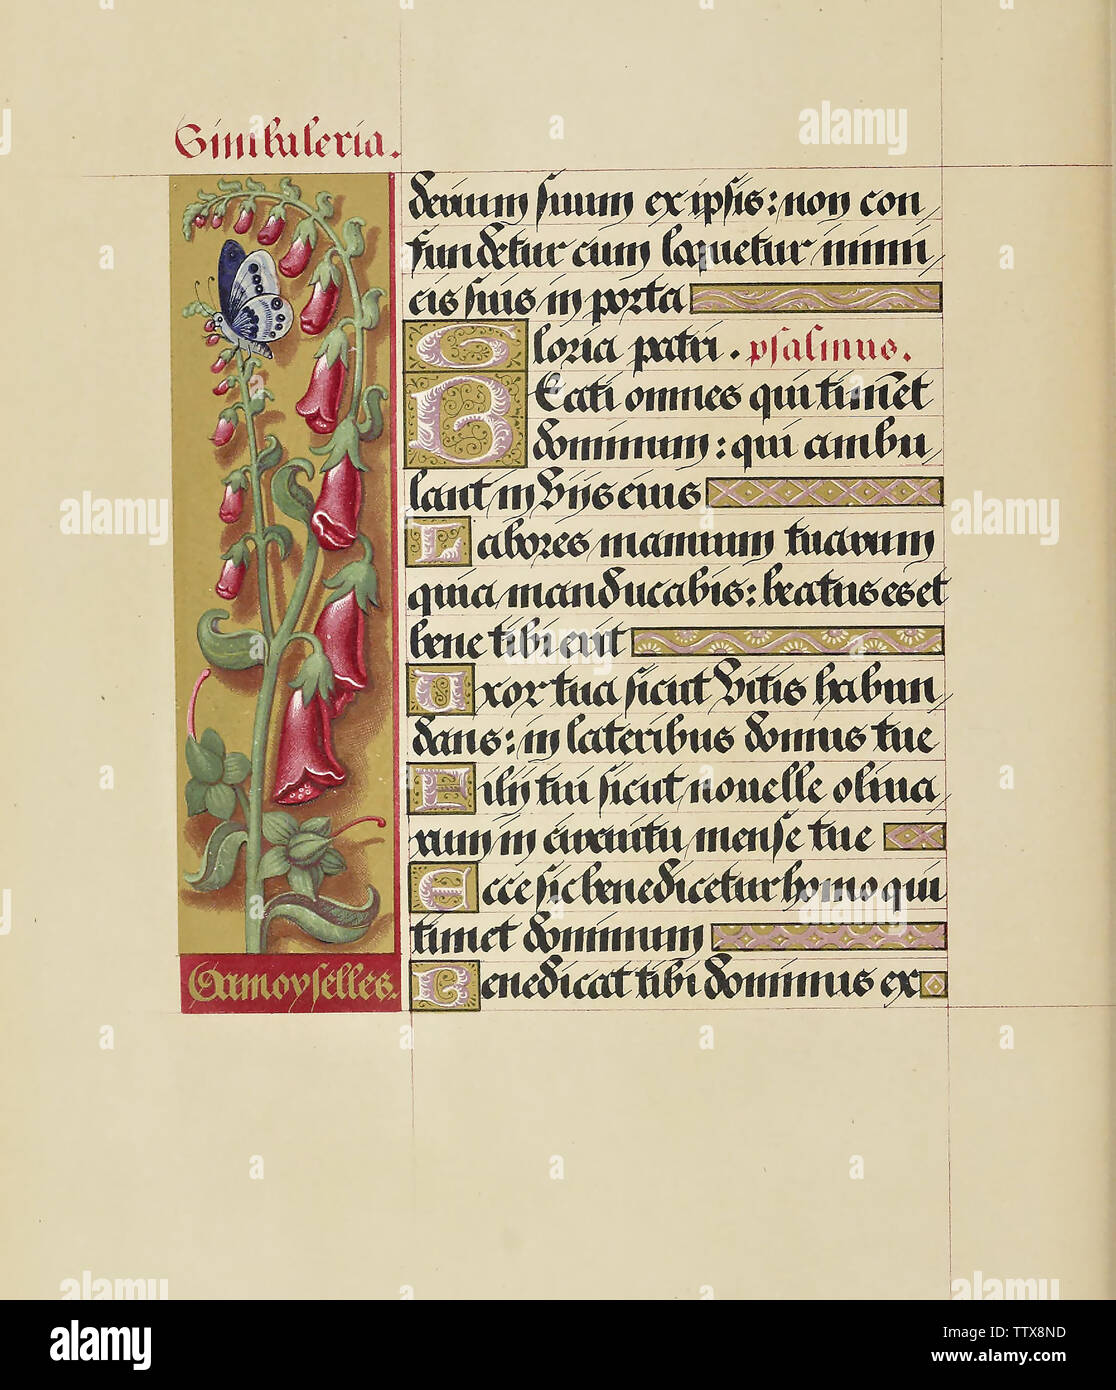 Simbaleria.
derium suum ex ipsis: non con
fundetur cum loquetur inimi
cis suis in porta
Gloria patri. psalmus.
Beati omnes qui timẽt
dominum: qui ambu
lant in viis eius
Labores manuum tuarum
quia manducabis: beatus es et
bene tibi erit
Uxor tua sicut vitis habun
dans: in lateribus domus tue
Filij tui sicut nouelle oliua
rum in circuitu mense tue
Ecce sic benedicetur homo qui
timet dominum
Benedicat tibi dominus ex
Damoyselles.
a alamy
alamy
Image ID: TTX8ND
www.alamy.com